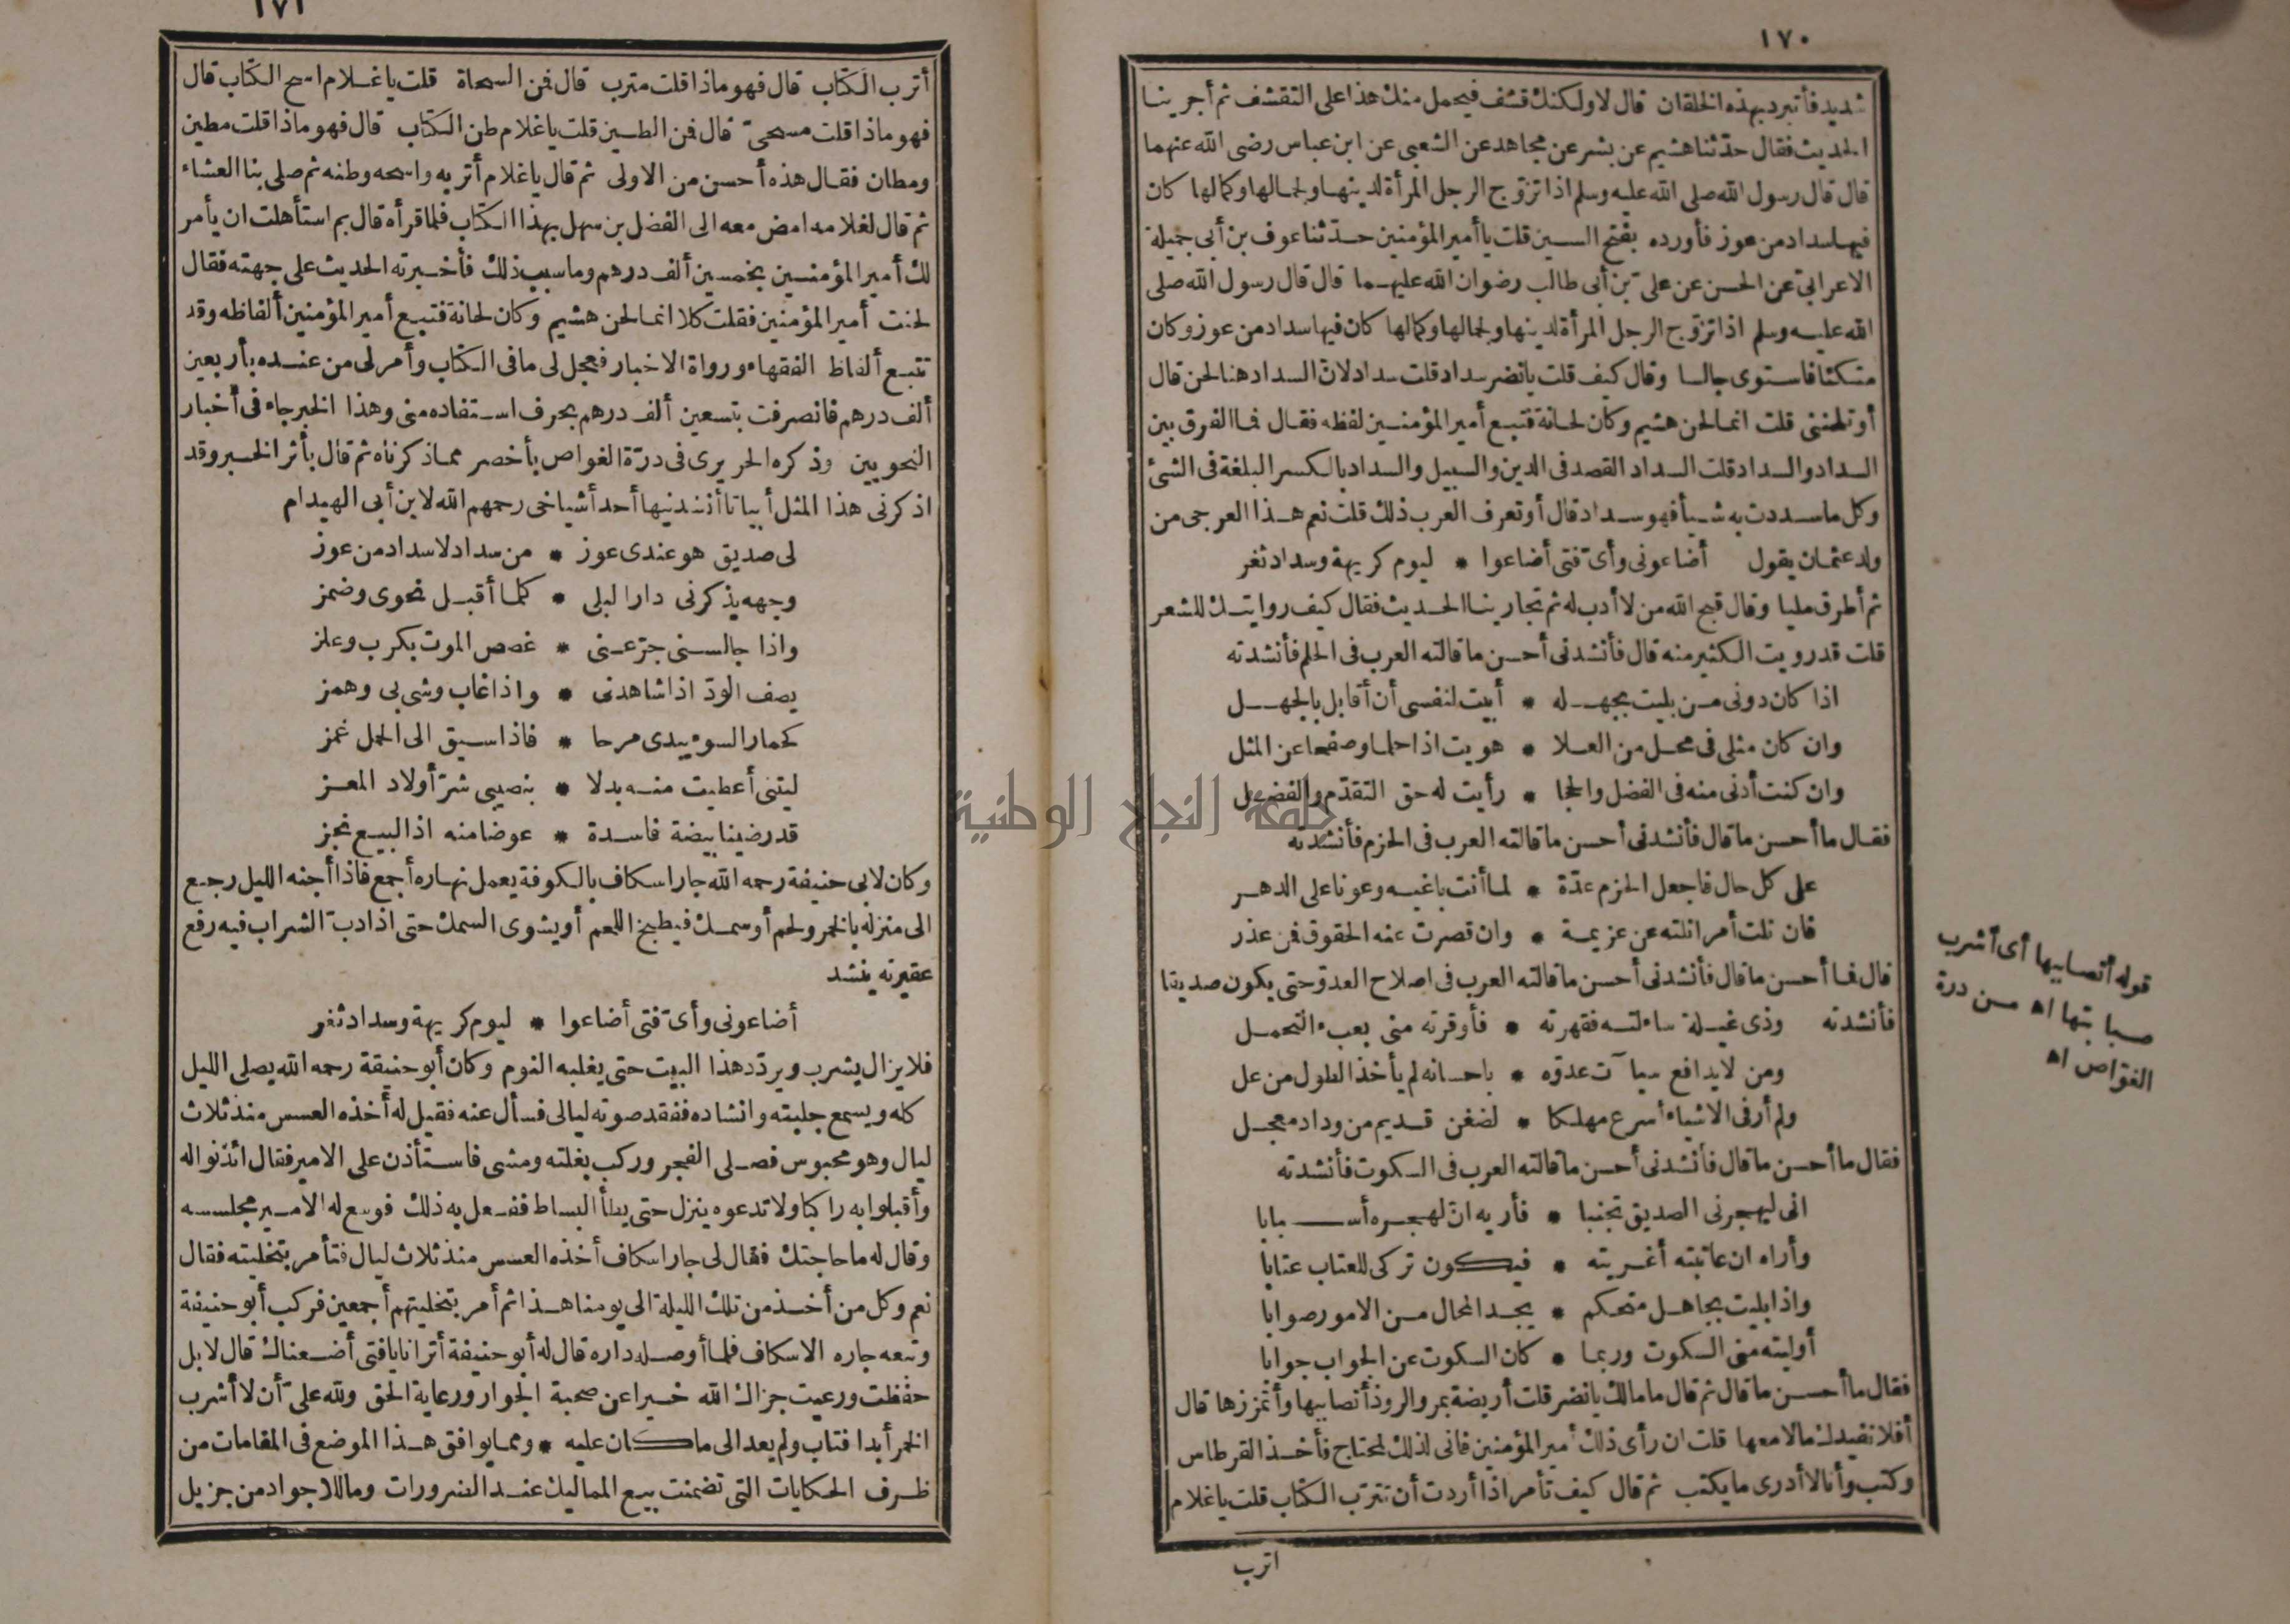 ١٧٠
شديد فأتبرد بهذه الخلقان قال لا ولكنك قشف فيحمل منك هذا على التقشف ثم أجرينا
الحديث فقال حدثنا هشيم عن بشر عن مجاهد عن الشعبي عن ابن عباس رضى الله عنهما
قال قال رسول الله صلى الله عليه وسلم اذا تزوج الرجل المرأة لدينها ولجمالها وكمالها كان
فيها سداد من عوز فأورده بفتح السين قلت يا أمير المؤمنين حدثنا عوف بن أبي جميلة
الاعرابي عن الحسن عن على بن أبى طالب رضوان الله عليهما قال قال رسول الله صلى
الله عليه وسلم اذا تزوج الرجل المرأة لدينها ولجمالها وكمالها كان فيها سداد من عوز وكان
متكئا فاستوى جالسا وقال كيف قلت يا نضر سداد قلت سداد لان السداد هنا لحن قال
أو تلحننى قلت انما لحن هشيم وكان لحانة فتبع أمير المؤمنين لفظه فقال فما الفرق بين
السداد والسداد قلت السداد القصد فى الدين والسبيل والسداد بالكسر البلغة فى الشئ
وكل ما سددت به شيأ فهو سداد قال أو تعرف العرب ذلك قلت نعم هذا العرجى من
ولد عثمان يقول أضاعونى وأىّ فتى أضاعوا * ليوم كريهة وسداد ثغر
ثم أطرق مليا وقال قبح الله من لا أدب له ثم تجارينا الحديث فقال كيف روايتك للشعر
قلت قد رويت الكثير منه قال فأنشدنى أحسن ما قالته العرب فى الحلم فأنشدته
اذا كان دونى من بليت بجهله * أبيت لنفسى أن أقابل بالجهل
وان كان مثلى فى محل من العلا * هويت اذا حلما وصفحا عن المثل
وان كنت أدنى منه فى الفضل والحجا * رأيت له حق التقدّم والفضل
فقال ما أحسن ما قال فأنشدنى أحسن ما قالته العرب فى الحزم فأنشدته
على كل حال فاجعل الحزم عدّة * لما أنت باغيه وعونا على الدهر
فان نلت أمرا نلته عن عزيمة * وان قصرت عنه الحقوق فعن عذر
قال فما أحسن ما قال فأنشدنى أحسن ما قالته العرب فى اصلاح العدوّ حتى يكون صديقا
فأنشدته وذى غيلة سالته فقهرته * فأوقرته منى بعبء التحمل
ومن لا يدافع سيآت عدوّه * باحسانه لم يأخذ الطول من عل
ولم أر فى الاشياء أسرع مهلكا * لضغن قديم من وداد معجل
فقال ما أحسن ما قال فأنشدنى أحسن ما قالته العرب فى السكوت فأنشدته
انى ليهجرنى الصديق تجنبا * فأريه انّ لهجره أسبابا
وأراه ان عاتبته أغريته * فيكون تركى للعتاب عتابا
واذا بليت بجاهل متحكم * يجد المحال من الامور صوابا
أوليته منى السكوت وربما * كان السكوت عن الجواب جوابا
فقال ما أحسن ما قال ثم قال ما مالك يا نضر قلت أريضة بمرو الروذ أتصابيها وأتمززها قال
أفلا نفيدك مالا معها قلت ان رأى ذلك أمير المؤمنين فانى لذلك لمحتاج فأخذ القرطاس
وكتب وأنا لا أدرى ما يكتب ثم قال كيف تأمر اذا أردت أن تترّب الكتاب قلت يا غلام
اترب
قوله أتصابيها أى أشرب
صبابتها اه من درة
الغوّاص اه
١٧١
أترب الكتاب قال فهو ماذا قلت مترب قال فمن السحاة قلت يا غلام اسح الكتاب قال
فهو ماذا قلت مسحىّ قال فمن الطين قلت يا غلام طن الكتاب قال فهو ماذا قلت مطين
ومطان فقال هذه أحسن من الاولى ثم قال يا غلام أتربه واسحه وطنه ثم صلى بنا العشاء
ثم قال لغلامه امض معه الى الفضل بن سهل بهذا الكتاب فلما قرأه قال بم استأهلت ان يأمر
لك أمير المؤمنين بخمسين ألف درهم وما سبب ذلك فأخبرته الحديث على جهته فقال
لحنت أمير المؤمنين فقلت كلا انما لحن هشيم وكان لحانة فتبع أمير المؤمنين ألفاظه وقد
تتبع ألفاظ الفقهاء ورواة الاخبار فعجل لى ما فى الكتاب وأمر لى من عنده بأربعين
ألف درهم فانصرفت بتسعين ألف درهم بحرف استفاده منى وهذا الخبر جاء فى أخبار
النحويين وذكره الحريرى فى درّة الغواص بأخصر مما ذكرناه ثم قال بأثر الخبر وقد
اذكرنى هذا المثل أبياتا أنشدنيها أحد أشياخى رحمهم الله لابن أبى الهيدام
لى صديق هو عندى عوز * من سداد لا سداد من عوز
وجهه يذكرنى دار البلى * كلما أقبل نحوى وضمز
واذا جالسنى جرّعنى * غصص الموت بكرب وعلز
يصف الودّ اذا شاهدنى * واذا غاب وشى بى وهمز
كحمار السوء يبدى مرحا * فاذا سيق الى الحمل غمز
ليتنى أعطيت منه بدلا * بنصيبى شرّ أولاد المعز
قد رضينا بيضة فاسدة * عوضا منه اذا البيع نجز
وكان لابى حنيفة رحمه الله جار اسكاف بالكوفة يعمل نهاره أجمع فاذا أجنه الليل رجع
الى منزله بالخمر ولحم أو سمك فيطبخ اللحم أو يشوى السمك حتى اذا دبّ الشراب فيه رفع
عقيرته ينشد
أضاعونى وأىّ فتى أضاعوا * ليوم كريهة وسداد ثغر
فلا يزال يشرب ويردّد هذا البيت حتى يغلبه النوم وكان أبو حنيفة رحمه الله يصلى الليل
كله ويسمع جلبته وانشاده ففقد صوته ليالى فسأل عنه فقيل له أخذه العسس منذ ثلاث
ليال وهو محبوس فصلى الفجر وركب بغلته ومشى فاستأذن على الامير فقال ائذنوا له
وأقبلوا به راكبا ولا تدعوه ينزل حتى يطأ البساط ففعل به ذلك فوسع له الامير مجلسه
وقال له ما حاجتك فقال لى جار اسكاف أخذه العسس منذ ثلاث ليال فتأمر بتخليته فقال
نعم وكل من أخذ من تلك الليلة الى يومنا هذا ثم أمر بتخليتهم أجمعين فركب أبو حنيفة
وتبعه جاره الاسكاف فلما أوصله داره قال له أبو حنيفة أترانا يا فتى أضعناك قال لا بل
حفظت ورعيت جزاك الله خيرا عن صحبة الجوار ورعاية الحق ولله علىّ أن لا أشرب
الخمر أبدا فتاب ولم يعد الى ما كان عليه * ومما يوافق هذا الموضع فى المقامات من
ظرف الحكايات التى تضمنت بيع المماليك عند الضرورات وما للاجواد من جزيل
حلقة النجاح الوطنية